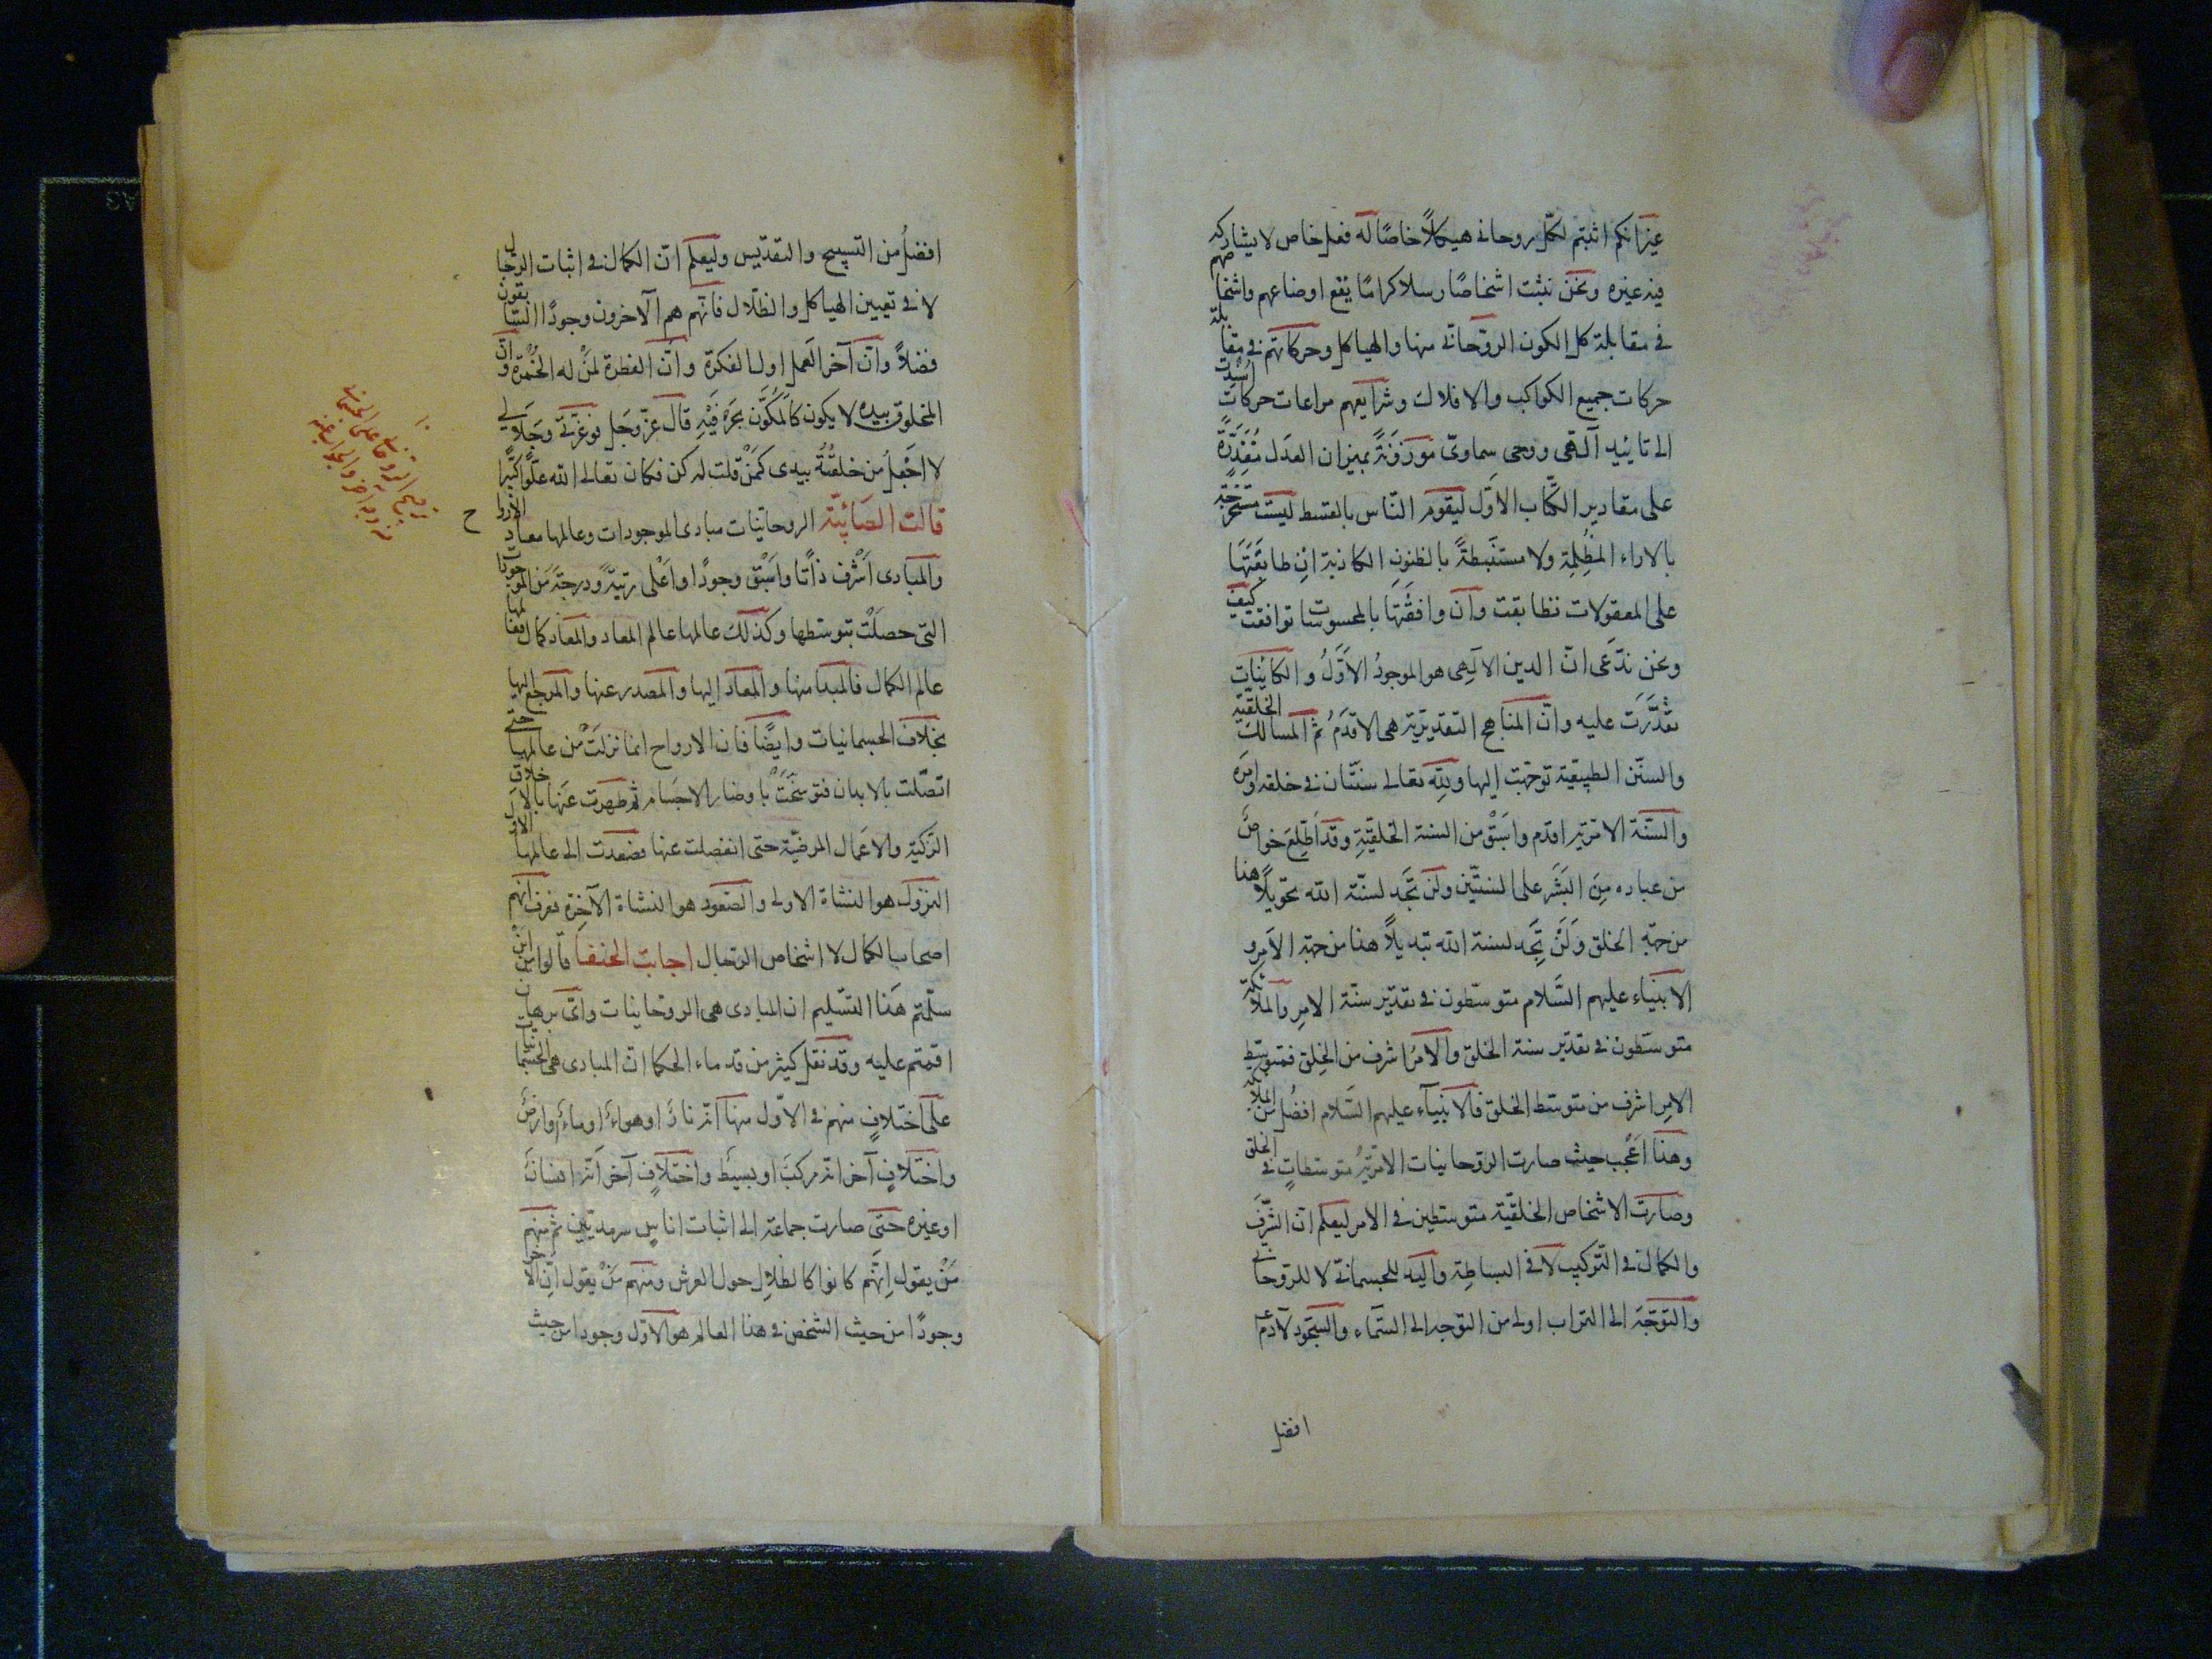 غير انكم اثبتم لكل روحاني هيكلاً خاصًا له فعل خاص لا يشاركه
فيه غيره ونحن نثبت اشخاصًا رسلا كرامًا يقع اوضاعهم واشخاصهم
في مقابلة كل الكون الروحاني منها والهياكل وحركاتهم في مقابلة
حركات جميع الكواكب والافلاك وشرايعهم مراعات حركات اسندت
الى تائيد آلهي ووحي سماوي موزونةً بميزان العدل مقدرةً
على مقادير الكتاب الاول ليقوم الناس بالقسط ليست مستخرجة
بالاراء المظلمة ولا مستنبطةً بالظنون الكاذبة ان طابقتها
على المعقولات تطابقت وان وافقتها بالمحسوسات توافقت كيف
ونحن ندّعى انّ الدين الالٓهى هو الموجودُ الاوّلُ والكائنات
تقدّرت عليه وانّ المناهج التقديريّة هى الاقدمُ ثم المسالك الخلقيّة
والسنن الطبيعية توجهت اليها ولله تعالى سنّتان في خلقه وامره
والسنّة الامرية اقدم واسبق من السنة الخلقيّةِ وقد اطلع خواصّ
من عباده من البشر على السنتين ولن تجد لسنّة الله تحويلاً هذا
من جهة الخلق ولن تجد لسنة الله تبديلاً هذا من جهة الامر و
الانبياء عليهم السّلام متوسّطون في تقدير سنّة الامر والملائكة
متوسّطون في تقدير سنة الخلق والامرُ اشرف من الخلق فمتوسط
الامر اشرف من متوسط الخلق فالانبيآء عليهم السّلام افضلُ من الملائكة
وهذا اعجب حيث صارت الروحانيات الامريّةُ متوسطاتٍ في الخلق
وصارت الاشخاص الخلقيّة متوسطين في الامر ليعلم ان الشّرف
والكمال في التّركيب لا في البساطة واليد للجسمانى لا للروحانى
والتوجّه الى التراب اولى من التوجه الى السّمآء والسّجود لآدم ع
افضل
افضلُ من التسبيح والتقديس وليعلم انّ الكمال في اثبات الرّجال
لا في تعيين الهياكل والظّلال فانّهم هم الآخرون وجودًا السّابقون
فضلاً وانّ آخر العمل اول الفكرة وانّ الفطرة لمن له الخُمرة وانّ
المخلوق بيده لا يكون كالمكوّن بحرفيه قال عزّ وجل فوعزتى وجلالي
لا اجعلُ من خلقتُهُ بيدى كمن قلت له كن فكان تعالى الله علوًا كبيرًا
قالت الصابئة الروحانيات مبادى الموجودات وعالمها معاد الأرواح
والمبادى اشرف ذاتًا واسبق وجودًا واعلى رتبةً ودرجةً من الموجودات
التى حصلت بتوسطها وكذلك عالمها عالم المعاد والمعاد كمال فعالمها
عالم الكمال فالمبدا منها والمعاد اليها والمصدر عنها والمرجع اليها
بخلاف الجسمانيات وايضًا فان الارواح انما نزلت من عالمها حتى
اتصلت بالابدان فتوسّخت باوضار الاجسام ثم طهرت عنها بالاخلاق
الزكية والاعمال المرضيّة حتى انفصلت عنها فصعدت الى عالمها الاول
النزول هو النشاة الاولى والصعود هو النشاة الآخرة فعرف انهم
اصحاب الكمال لا اشخاص الرّجال اجابت الحنفا قالوا من اين
سلّمتم هذا التسليم ان المبادى هى الروحانيات واىّ برهان
اقمتم عليه وقد نقل كثير من قدماء الحكما انّ المبادى هى الجسمانيات
على اختلافٍ منهم في الاوّل منها انّه نارٌ او هواءٌ او ماءٌ او ارضٌ
واختلافٍ آخر انّه مركبٌ او بسيطٌ واختلافٍ آخر انّه انسانٌ
او غيره حتى صارت جماعة الى اثبات اناسٍ سرمديين ثم منهم
من يقول انّهم كانوا كالظلال حول العرش ومنهم من يقول ان الآخر
وجودًا من حيث الشخص في هذا العالم هو الاوّل وجودا من حيث